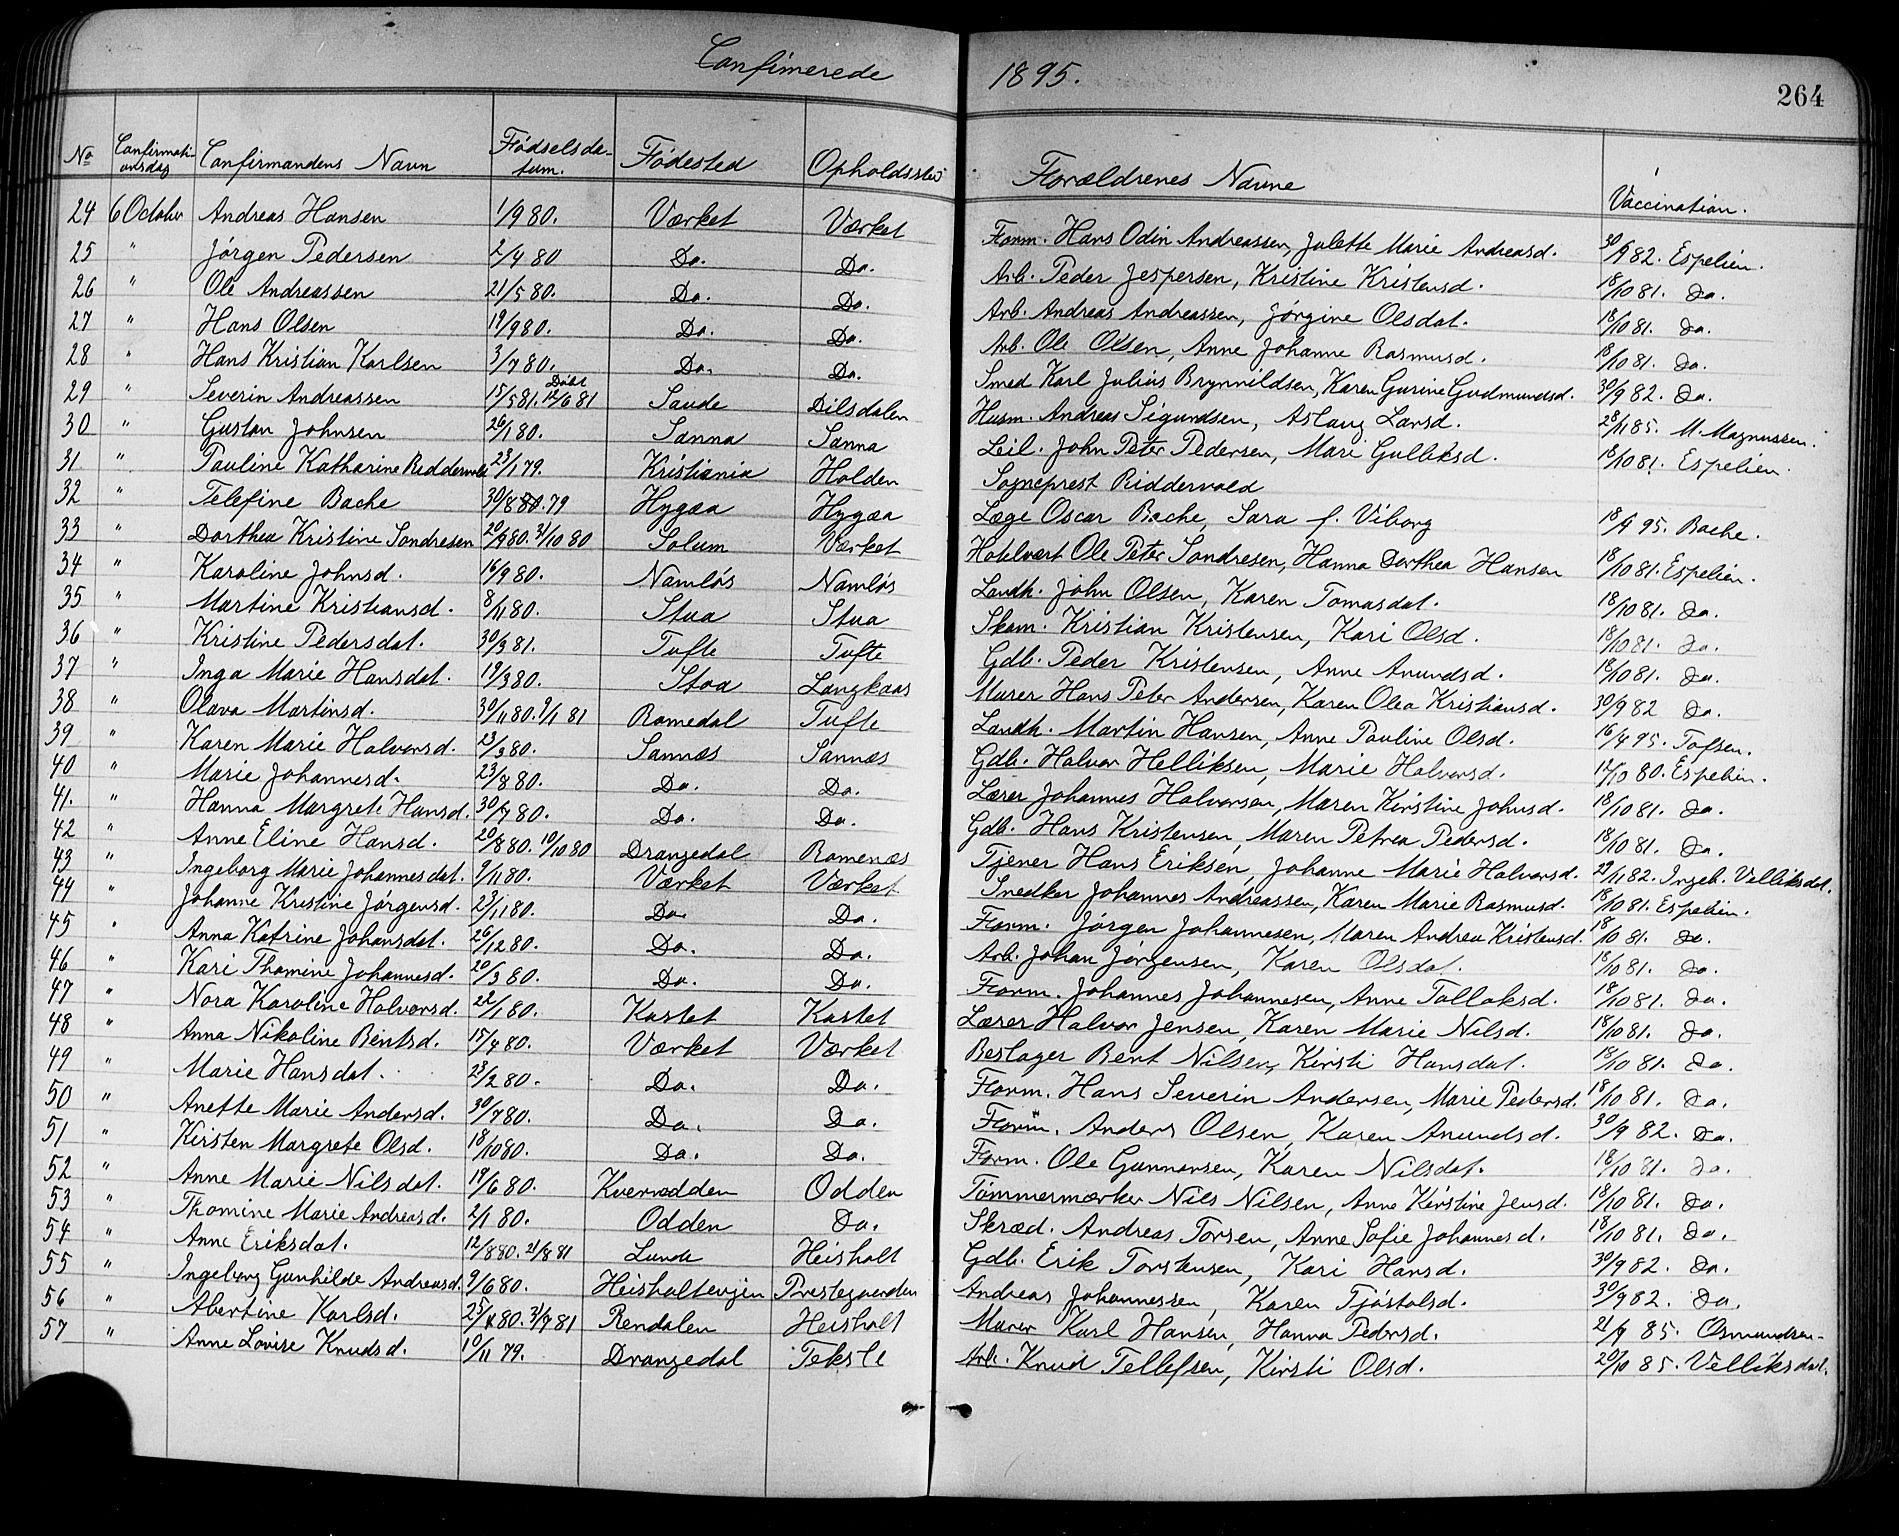 Confimerede 1895.
264
No Confirmationsdag Confirmandens Navn Fødselsdatum. Fødested Opholdssted Forældrenes Navne Vaccination.
24 6 October Andreas Hansen 1/9 80. Værket Værket Form. Hans Odin Andreassen, Julette Marie Andreasd. 30/9 82. Espelien.
25 " Jørgen Pedersen 2/4 80 Do. Do. Arb. Peder Jespersen, Kristine Kristensd. 18/10 81. Do.
26 " Ole Andreassen 21/5 80. Do. Do. Arb. Andreas Andreassen, Jørgine Olsdat. 18/10 81. Do.
27 " Hans Olsen 19/9 80. Do. Do. Arb. Ole Olsen, Anne Johanne Rasmusd. 18/10 81. Do.
28 " Hans Kristian Karlsen 3/7 80. Do. Do. Smed Karl Julius Brynnildsen, Karen Gurine Gudmundsd. 30/9 82. Do.
29 " Severin Andreassen 15/5 81. Døbt 12/6 81 Saude Dilsdalen Husm. Andreas Sigurdsen, Aslaug Larsd. 28/11 85. M. Magnussen.
30 " Gustav Johnsen 26/1 80. Sanna Sanna Leil. John Peter Pedersen, Mari Gulliksd. 18/10 81. Espelien.
31 " Pauline Katharine Riddervold 23/1 79. Kristiania Holden Sogneprest Riddervold
32 " Telefine Bache 30/8 80. 79 Hygæa Hygæa Læge Oscar Bache, Sara f. Viborg 18/9 95. Bache.
33 " Dorthea Kristine Sondresen 20/9 80. 31/10 80 Solum Værket Hotelvært Ole Peter Sondresen, Hanna Dorthea Hansen 18/10 81. Espelien.
34 " Karoline Johnsd. 16/9 80. Namløs Namløs Landh. John Olsen, Karen Tomasdat. 18/10 81. Do.
35 " Martine Kristiansd. 8/11 80. Stua Stua Skom. Kristian Kristensen, Kari Olsd. 18/10 81. Do.
36 " Kristine Pedersdat. 30/3 81. Tufte Tufte Gdb. Peder Kristensen, Anne Anundsd. 18/10 81. Do.
37 " Inga Marie Hansdat. 19/3 80. Stoa Langkaas Murer Hans Peter Andersen, Karen Olea Kristiansd. 30/9 82 Do.
38 " Olava Martinsd. 30/11 80. 9/1 81 Romedal Tufte Landh. Martin Hansen, Anne Pauline Olsd. 16/4 95. Tofsen.
39 " Karen Marie Halvorsd. 23/3 80. Sannæs Sannæs Gdb. Halvor Helliksen, Marie Halvorsd. 14/10 80. Espelien.
40 " Marie Johannesd. 23/8 80. Do. Do. Lærer Johannes Halvorsen, Maren Kirstine Johnsd. 18/10 81. Do.
41. " Hanna Margrete Hansd. 30/7 80. Do. Do. Gdb. Hans Kristensen, Maren Petrea Pedersd. 18/10 81. Do.
42 " Anne Eline Hansd. 20/8 80. 10/10 80 Drangedal Romenæs Tjener Hans Eriksen, Johanne Marie Halvorsd. 29/11 82. Ingeb. Velliksdat.
43 " Ingeborg Marie Johannesdat. 9/11 80. Værket Værket Snedker Johannes Andreassen, Karen Marie Rasmusd. 18/10 81. Espelien.
44 " Johanne Kristine Jørgensd. 2/11 80. Do. Do. Form. Jørgen Johannesen, Maren Andrea Kristensd. 18/10 81. Do.
45 " Anna Katrine Johansdat. 26/12 80. Do. Do. Arb. Johan Jørgensen, Karen Olsdat. 18/10 81. Do.
46 " Kari Thomine Johannesd. 20/3 80. Do. Do. Form. Johannes Johannesen, Anne Tollaksd. 18/10 81. Do.
47 " Nora Karoline Halvorsd. 22/1 80. Kastet Kastet Lærer Halvor Jensen, Karen Marie Nilsd. 18/10 81. Do.
48 " Anna Nikoline Bentsd. 15/4 80. Værket Værket Beslager Bent Nilsen, Kirsti Hansdat. 18/10 81. Do.
49 " Marie Hansdat. 23/2 80. Do. Do. Form. Hans Severin Andersen, Marie Pedersd. 18/10 81. Do.
50 " Anette Marie Andersd. 30/7 80. Do. Do. Form. Anders Olsen, Karen Anundsd. 30/9 82. Do.
51 " Kirsten Margrete Olsd. 18/10 80. Do. Do. Form. Ole Gunnarsen, Karen Nilsdat. 18/10 81. Do.
52 " Anne Marie Nilsdat. 19/6 80. Kverrødden Odden Tømmermærker Nils Nilsen, Anne Kirstine Jensd. 18/10 81. Do.
53 " Thomine Marie Andreasd. 2/1 80. Odden Do. Skræd. Andreas Torsen, Anne Sofie Johannesd. 18/10 81. Do.
54 " Anne Eriksdat. 12/8 80. 21/8 81 Lunde Heisholt Gdb. Erik Torstensen, Kari Hansd. 30/9 82. Do.
55 " Ingeborg Gunhilde Andreasd. 9/6 80. Heisholteujen Prestegaarden Andreas Johannessen, Karen Tjøstolsd. 30/9 82. Do.
56 " Abertine Karlsd. 25/4 80. 31/7 81 Rendalen Heisholt Murer Karl Hansen, Hanna Pedersd. 21/9 85. Osmundsen
57 " Anne Lovise Knudsd. 10/11 79. Drangedal Teksle Arb. Knud Tellefsen, Kirsti Olsd. 20/10 85. Velliksdat.